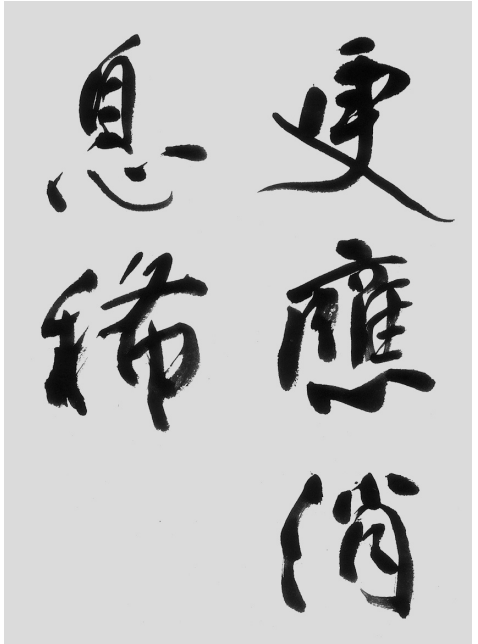 更應消
息稀